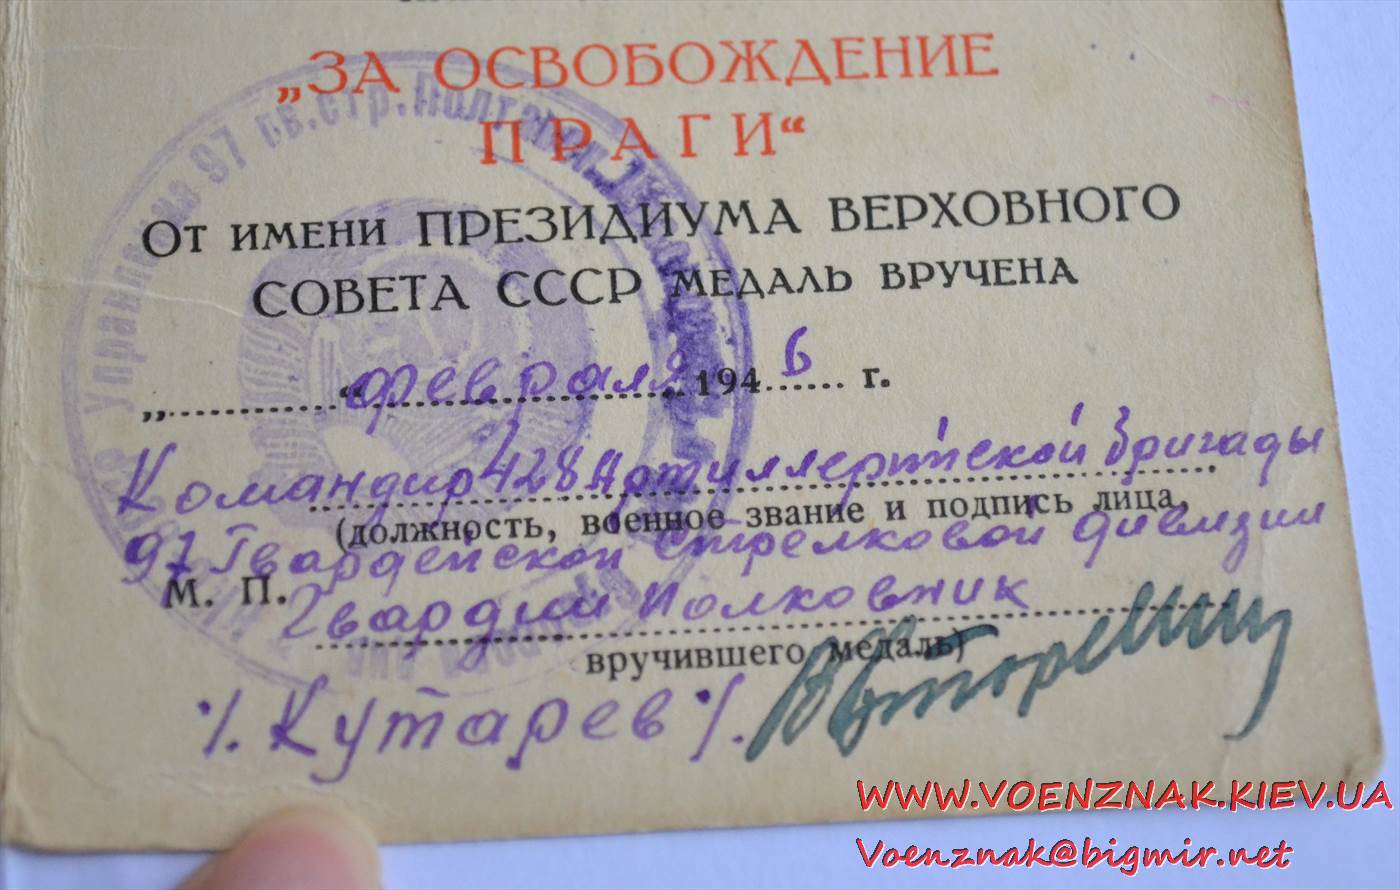 „ЗА ОСВОБОЖДЕНИЕ
ПРАГИ“
ОТ ИМЕНИ ПРЕЗИДИУМА ВЕРХОВНОГО
СОВЕТА СССР МЕДАЛЬ ВРУЧЕНА
„ “ февраля 1946 г.
Командир 428 Артиллерийской бригады
(должность, военное звание и подпись лица,
97 Гвардейской стрелковой дивизии
М. П.
Гвардии полковник
вручившего медаль)
/. Кутарев /.
Управление 97 гв. стр. Полтавской
WWW.VOENZNAK.KIEV.UA
Voenznak@bigmir.net